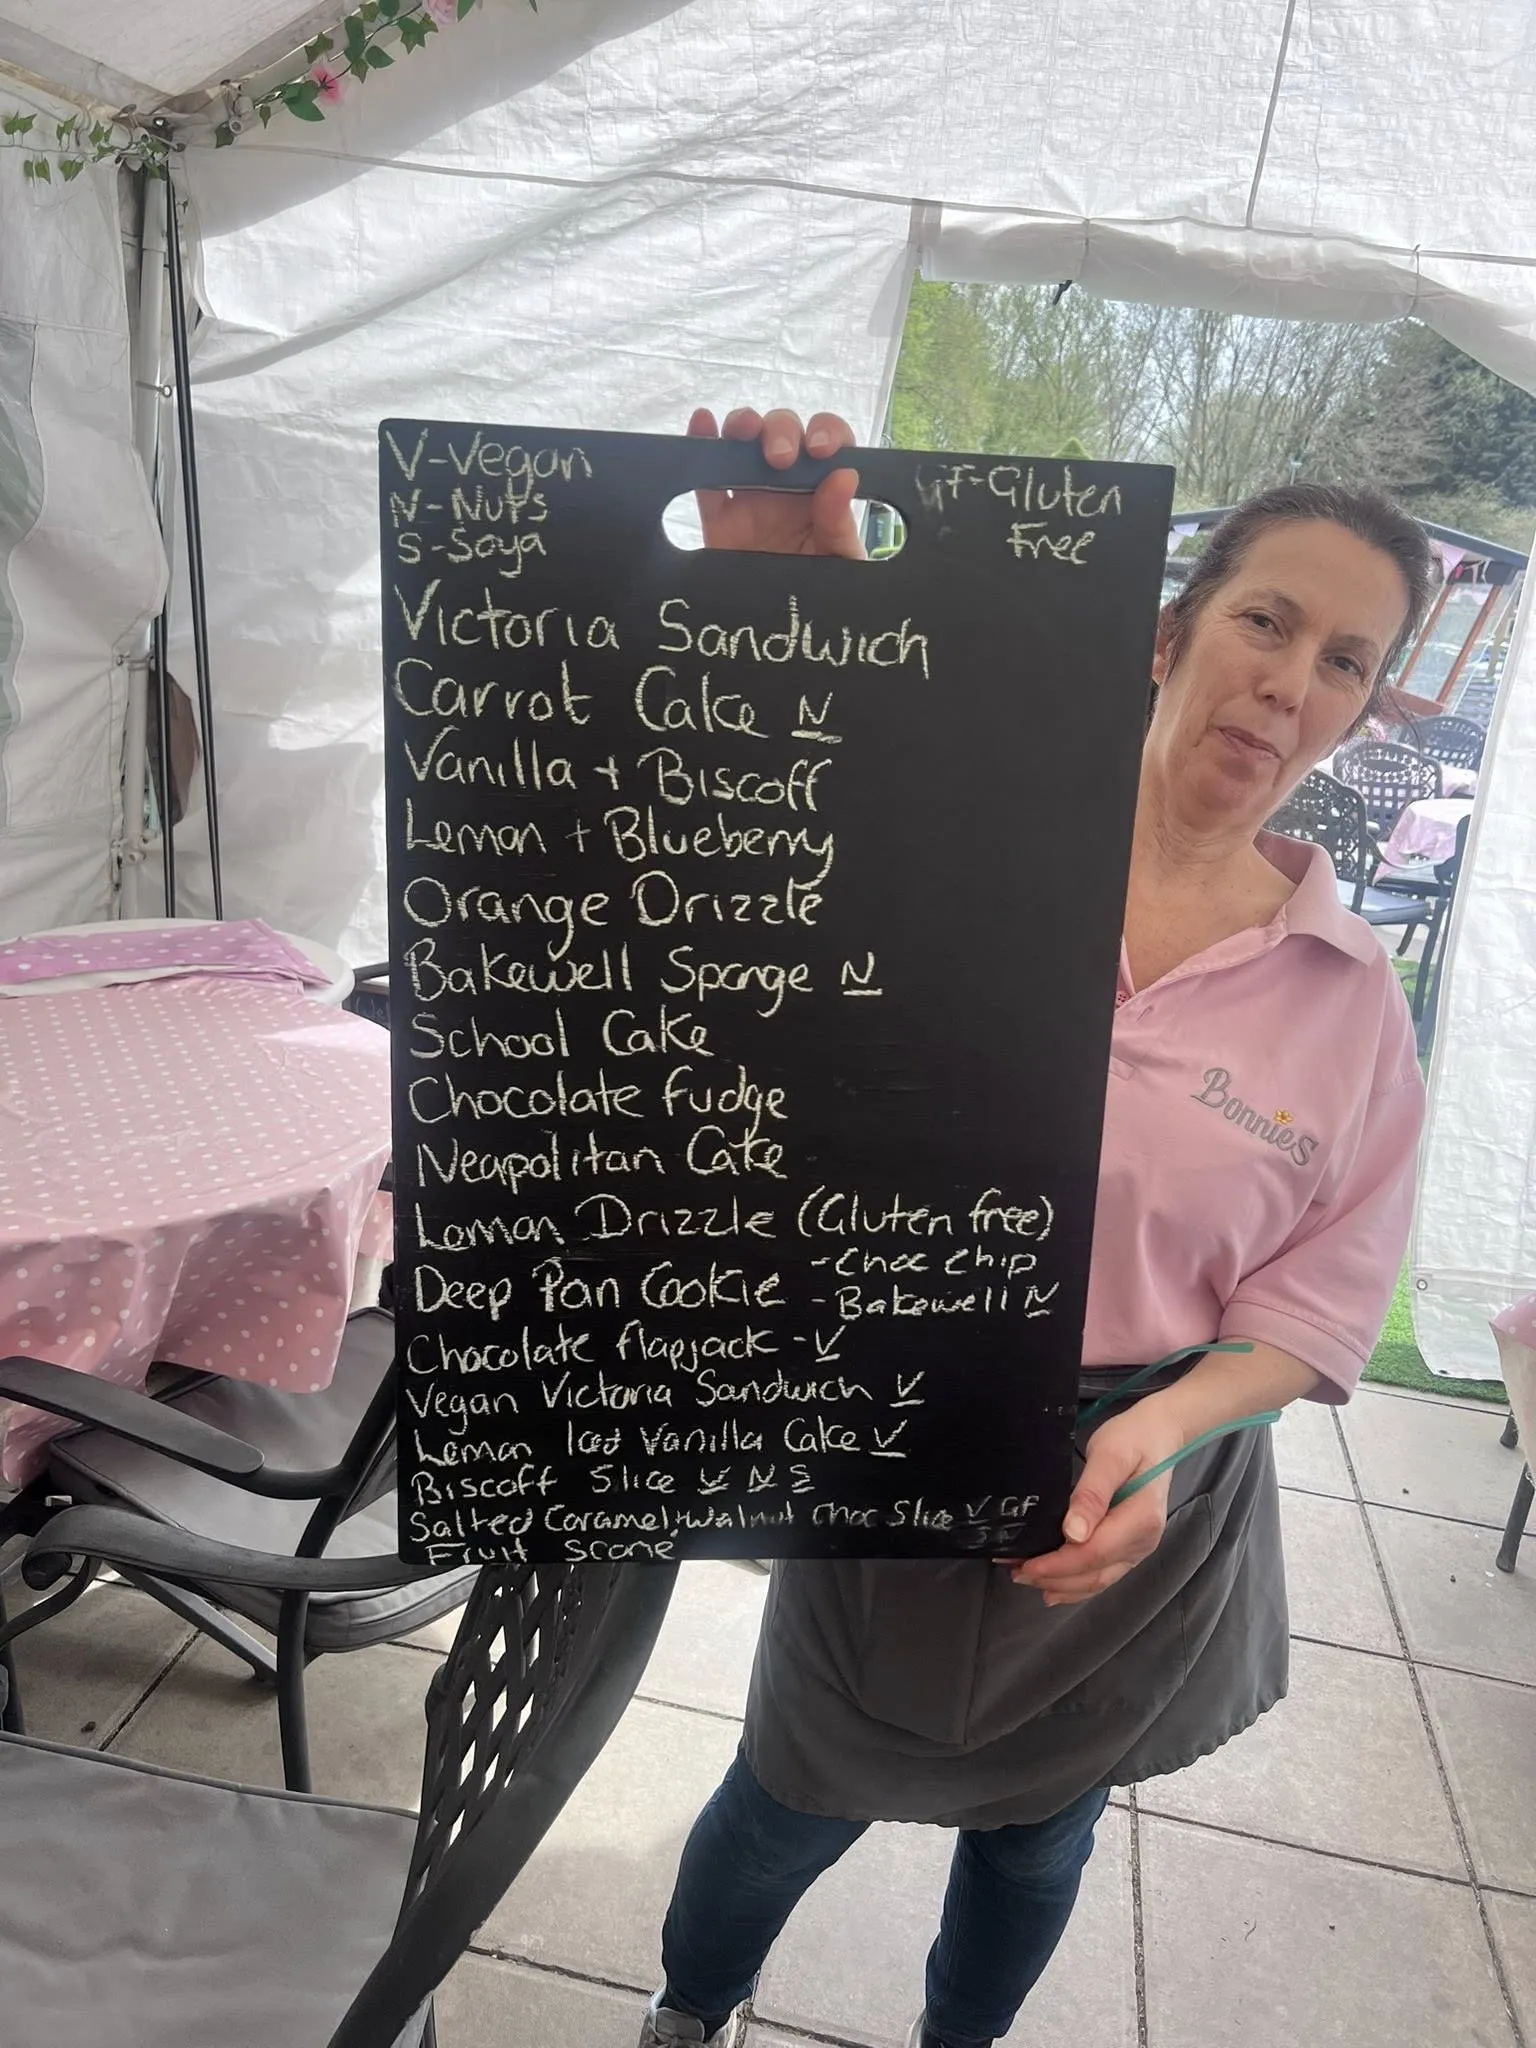 V-Vegan
N-Nuts
S-Soya
GF-Gluten
Free
Victoria Sandwich
Carrot Cake N
Vanilla + Biscoff
Lemon + Blueberry
Orange Drizzle
Bakewell Sponge N
School Cake
Chocolate fudge
Neapolitan Cake
Lemon Drizzle (Gluten free)
Deep Pan Cookie - Choc chip
- Bakewell N
Chocolate flapjack - V
Vegan Victoria Sandwich V
Lemon Iced Vanilla Cake V
Biscoff Slice V N S
Salted Caramel + Walnut Choc Slice V GF
S N
Fruit Scone
Bonnies